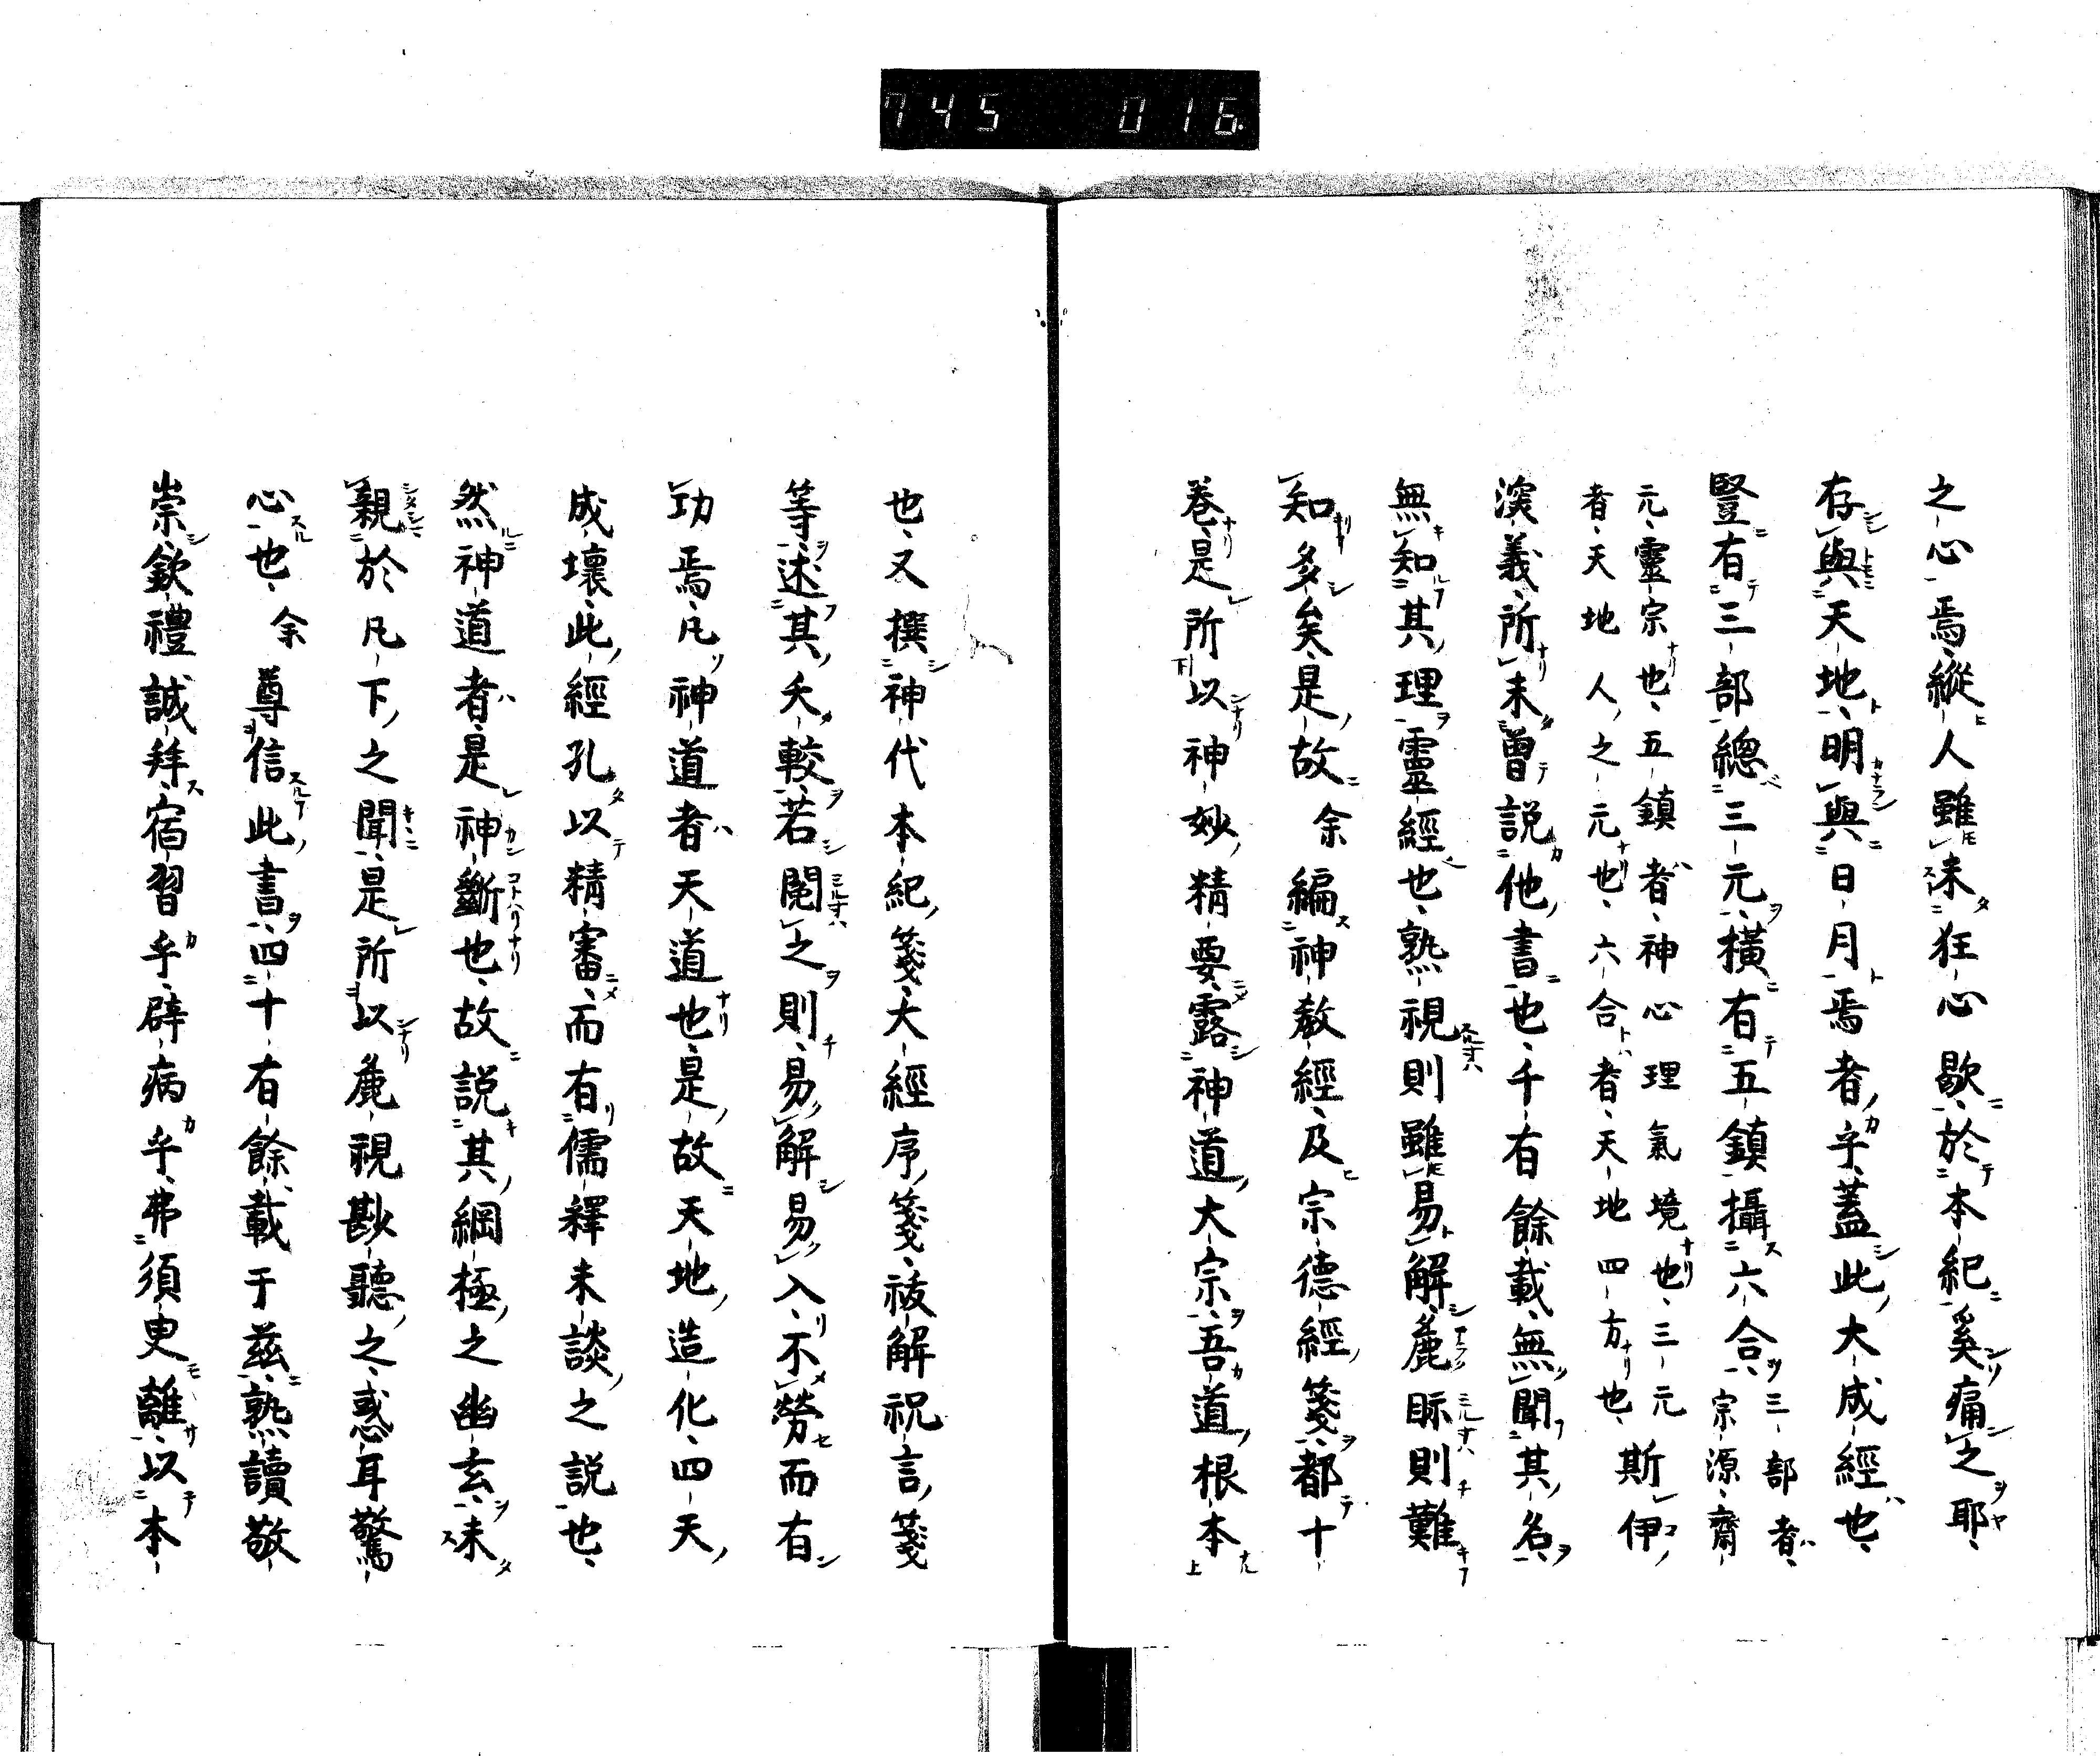 745 016
之心焉縱人雖未狂心歇於本紀奚痛之耶、
存與天地、明與日月焉者乎、蓋此大成經也、
豎有三部總三元、橫有五鎮攝六合、三部者、宗源齋
元、靈宗也、五鎮者、神心理氣境也、三元
者、天地人之元也、六合者、天地四方也、斯伊
深義、所未曾說他書也、千有餘載、無聞其名、
無知其理、靈經也、熟視則雖易解、麁眎則難
知多矣、是故余編神教經、及宗德經箋、都十
卷、是所以神妙精要、露神道大宗、吾道根本
也、又撰神代本紀箋、大經序箋、祓解祝言箋
等、述其大較、若閱之則、易解易入、不勞而有
功焉、凡神道者天道也、是故天地造化、四天
成壞、此經孔以精審、而有儒釋未談之說也、
然神道者、是神斷也、故說其綱極之幽玄、未
親於凡下之聞、是所以麁視尠聽之、惑耳驚
心也、余尊信此書、四十有餘載于茲、熟讀敬
崇、欽禮誠拜、宿習乎、辟病乎、弗須臾離、以本